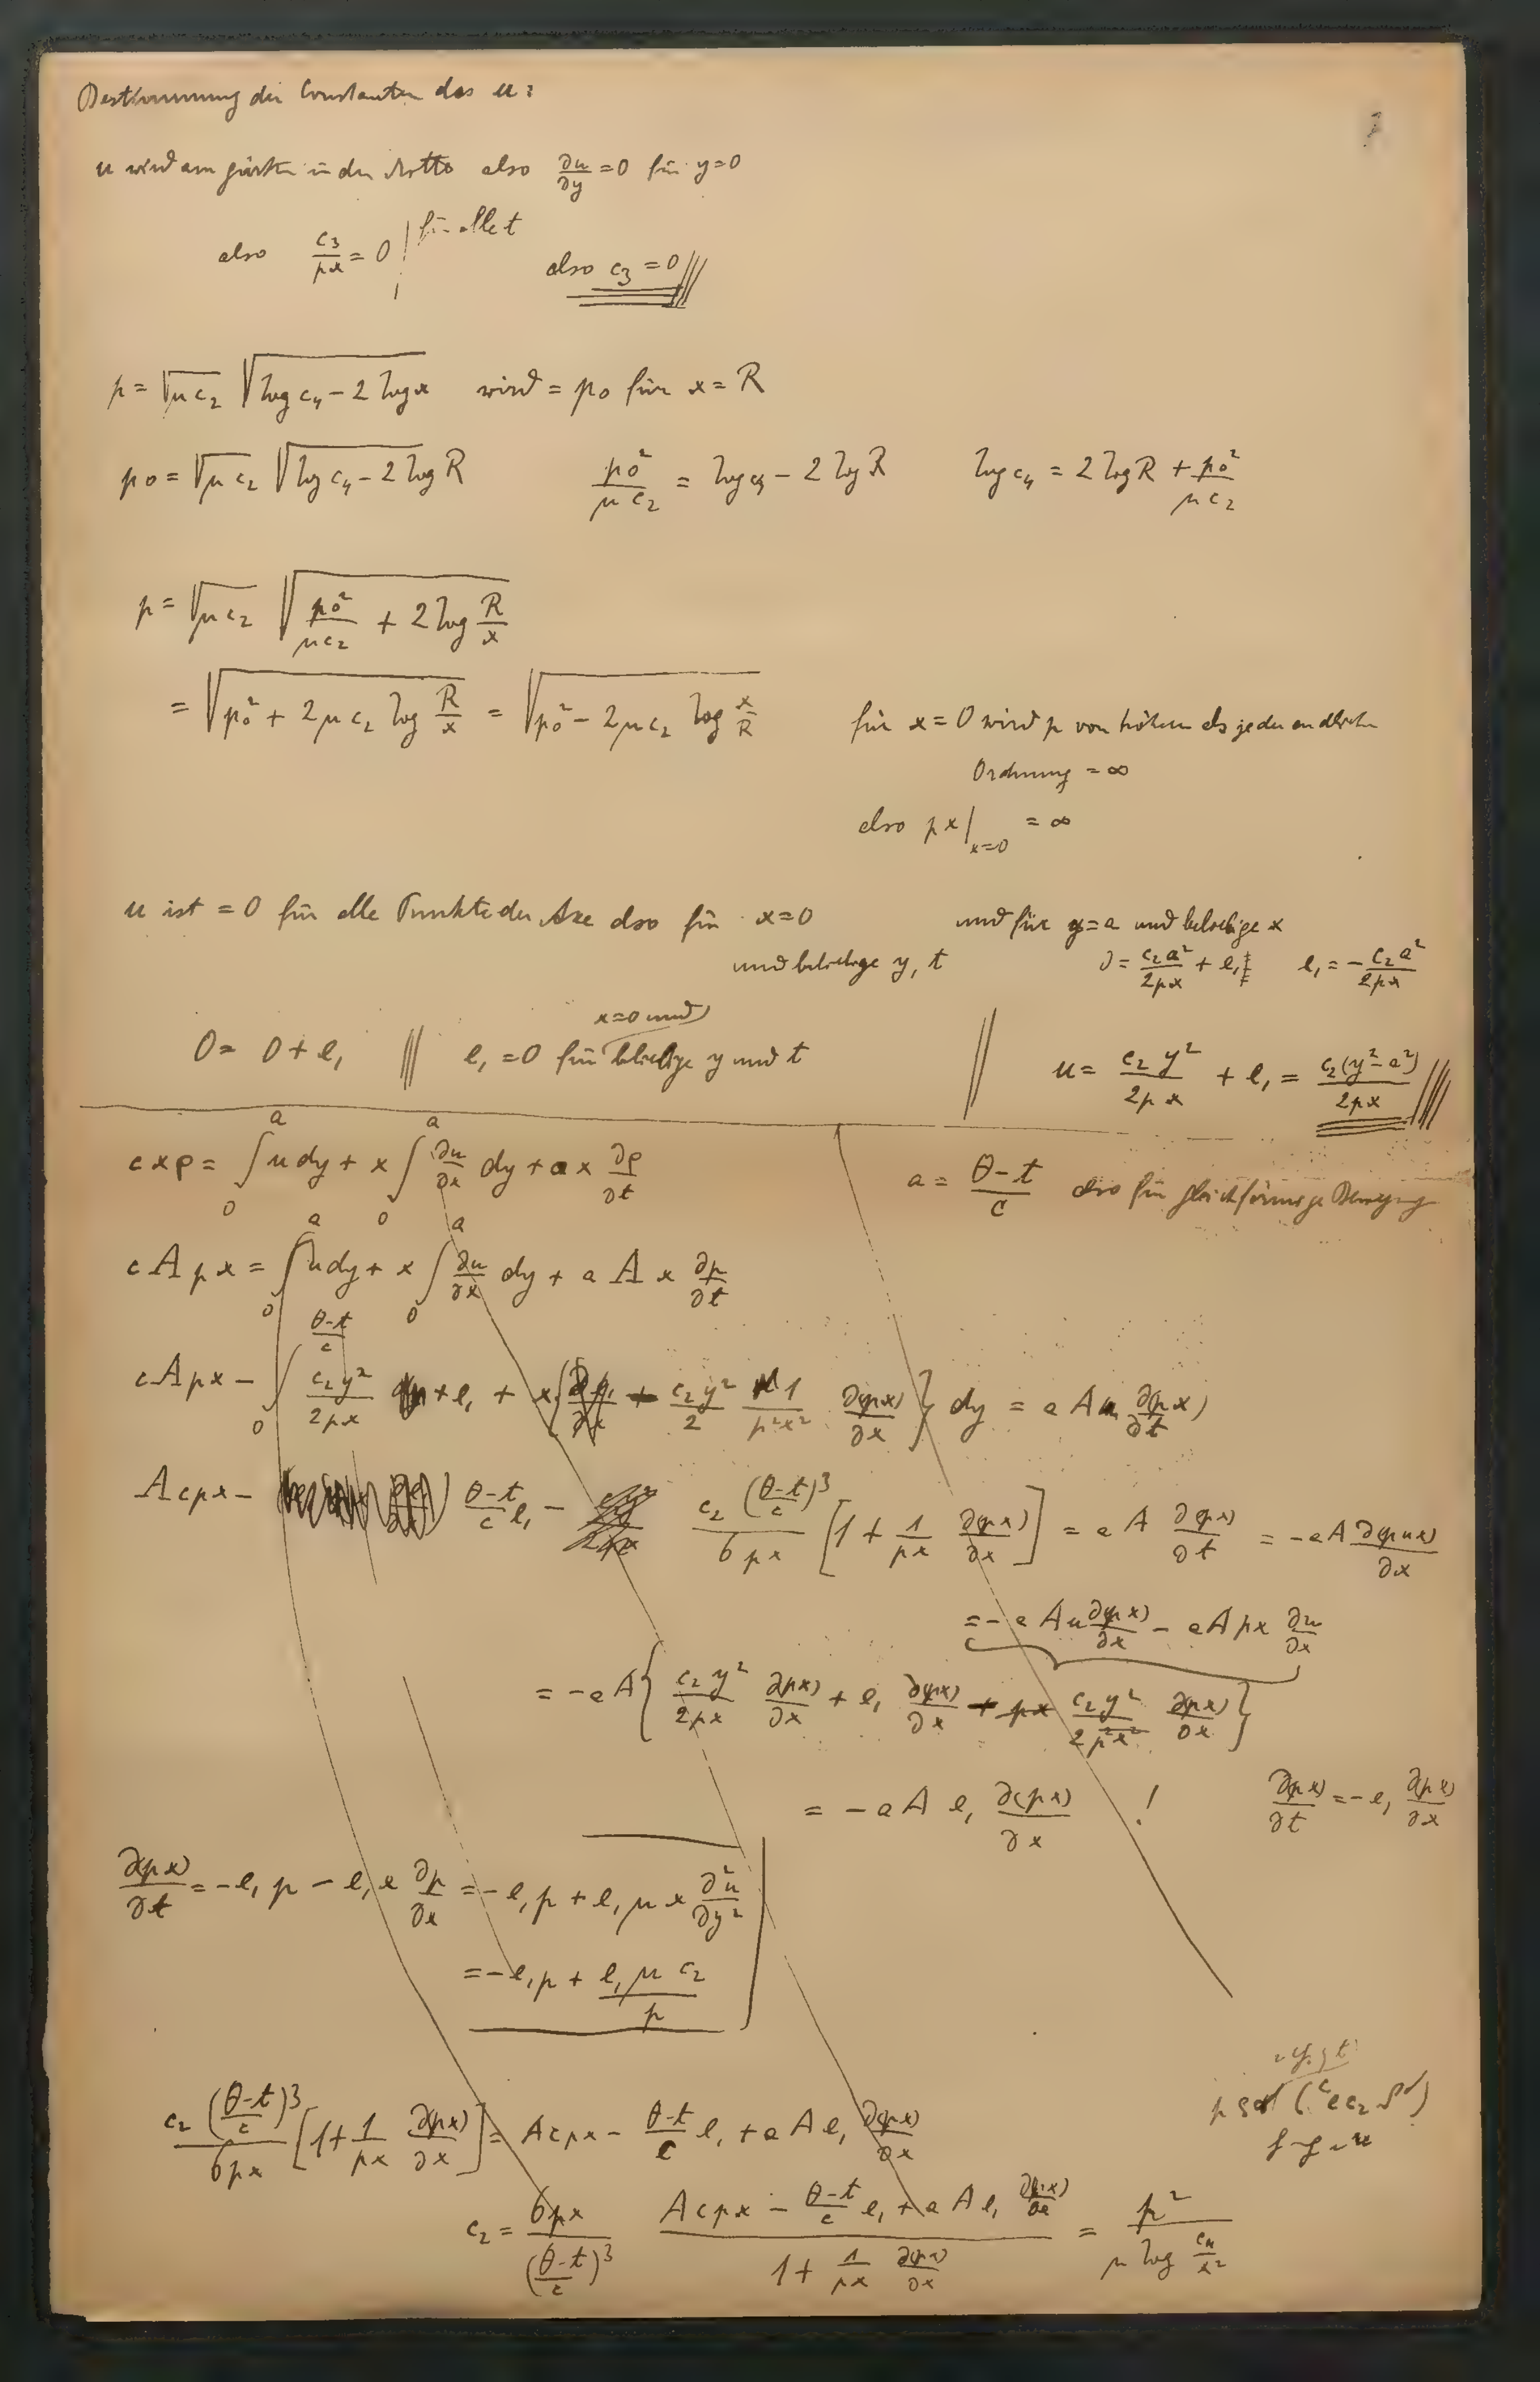 Bestimmung der Constanten des u:
u wird am größten in der Mitte also ∂u/∂y = 0 für y=0
also c₃/px = 0 | für alle t
also c₃ = 0
p = √(μc₂) √(log c₄ − 2 log x) wird = p₀ für x = R
p₀ = √(μc₂) √(log c₄ − 2 log R) p₀²/(μc₂) = log c₄ − 2 log R log c₄ = 2 log R + p₀²/(μc₂)
p = √(μc₂) √(p₀²/(μc₂) + 2 log R/x)
= √(p₀² + 2μc₂ log R/x) = √(p₀² − 2μc₂ log x/R) für x = 0 wird p von höherer als jeder endlichen
Ordnung = ∞
also px|ₓ₌₀ = ∞
u ist = 0 für alle Punkte der Axe also für x=0
und beliebige y, t
und für y=a und beliebige x
0 = c₂a²/(2px) + l₁ l₁ = −c₂a²/(2px)
x=0 und
0 = 0 + l₁ l₁ = 0 für beliebige y und t
u = c₂y²/(2px) + l₁ = c₂(y²−a²)/(2px)
cxρ = ∫₀ᵃ u dy + x ∫₀ᵃ ∂u/∂x dy + a x ∂ρ/∂t
a = (θ−t)/c also für gleichförmige Bewegung
cApx = ∫₀ᵃ u dy + x ∫₀ᵃ ∂u/∂x dy + a A x ∂p/∂t
cApx − ∫₀^((θ−t)/c) c₂y²/(2px) + l₁ + x{ c₂y²/2 1/(p²x²) ∂(px)/∂x } dy = a A ∂(px)/∂t
Acpx − (θ−t)/c l₁ − c₂((θ−t)/c)³/(6px) [1 + 1/(px) ∂(px)/∂x] = a A ∂(px)/∂t = −aA ∂(pux)/∂x
= −a A u ∂(px)/∂x − a A px ∂u/∂x
= −aA { c₂y²/(2px) ∂(px)/∂x + l₁ ∂(px)/∂x + px c₂y²/(2p²x²) ∂(px)/∂x }
= −aA l₁ ∂(px)/∂x ! ∂(px)/∂t = −l₁ ∂(px)/∂x
∂(px)/∂t = −l₁p − l₁x ∂p/∂x = −l₁p + l₁μx ∂²u/∂y²
= −l₁p + l₁μc₂/p
c₂((θ−t)/c)³/(6px) [1 + 1/(px) ∂(px)/∂x] = Acpx − (θ−t)/c l₁ + aAl₁ ∂(px)/∂x
c₂ = 6px/((θ−t)/c)³ (Acpx − (θ−t)/c l₁ + aAl₁ ∂(px)/∂x)/(1 + 1/(px) ∂(px)/∂x) = p²/(μ log c₄/x²)